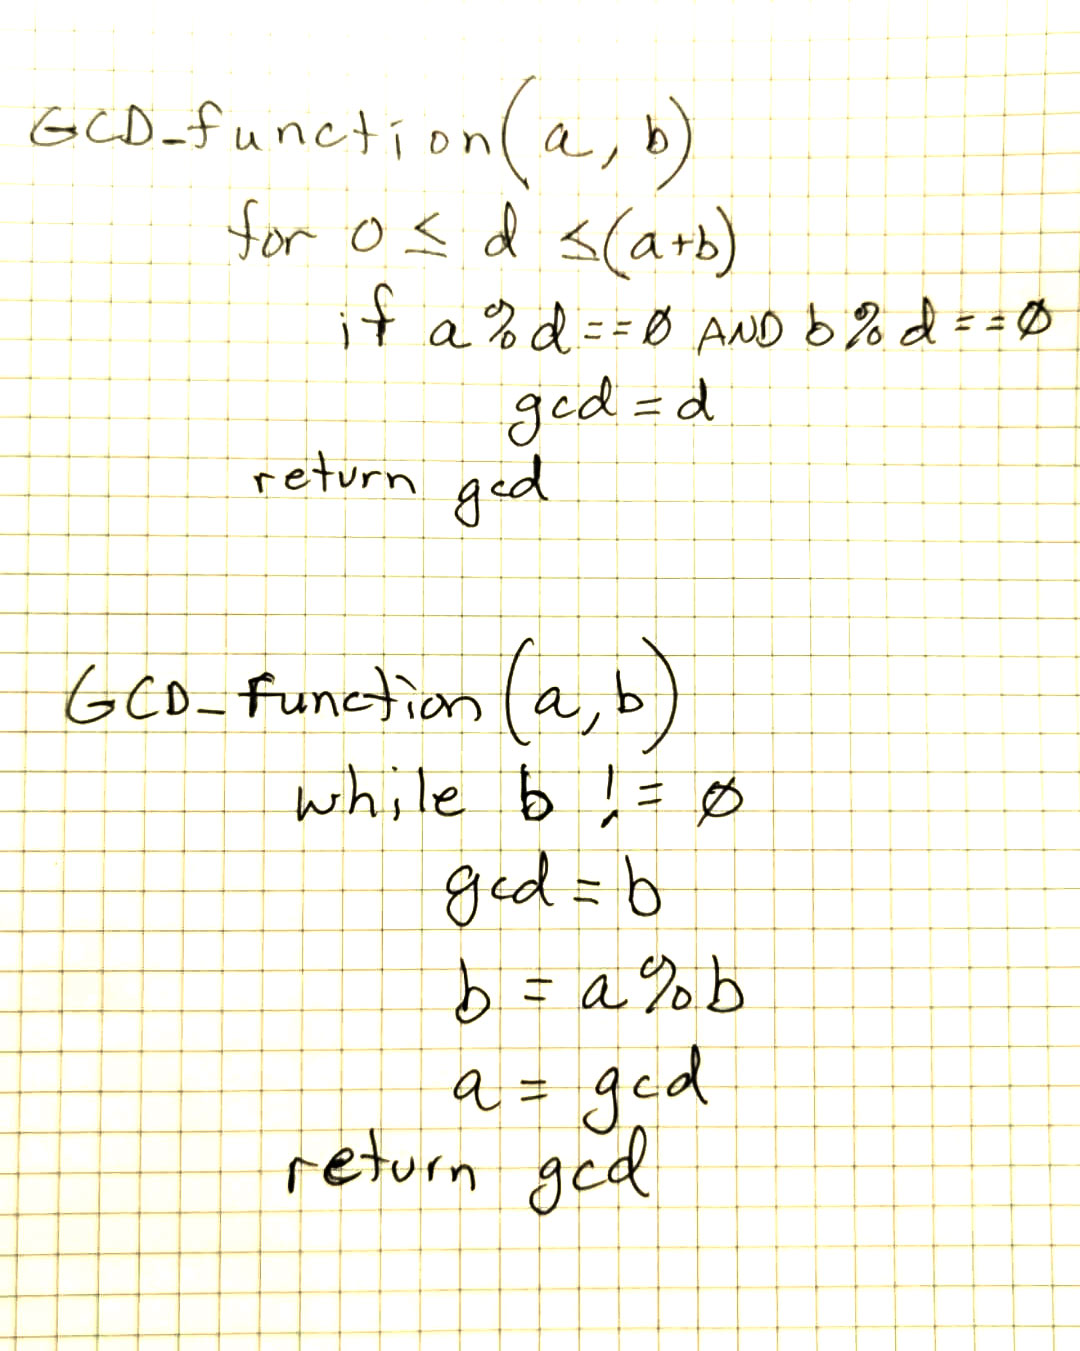 GCD_function(a, b)
for 0 ≤ d ≤(a+b)
if a%d==Ø AND b%d==Ø
gcd=d
return gcd
GCD_function(a,b)
while b != Ø
gcd=b
b = a%b
a = gcd
return gcd